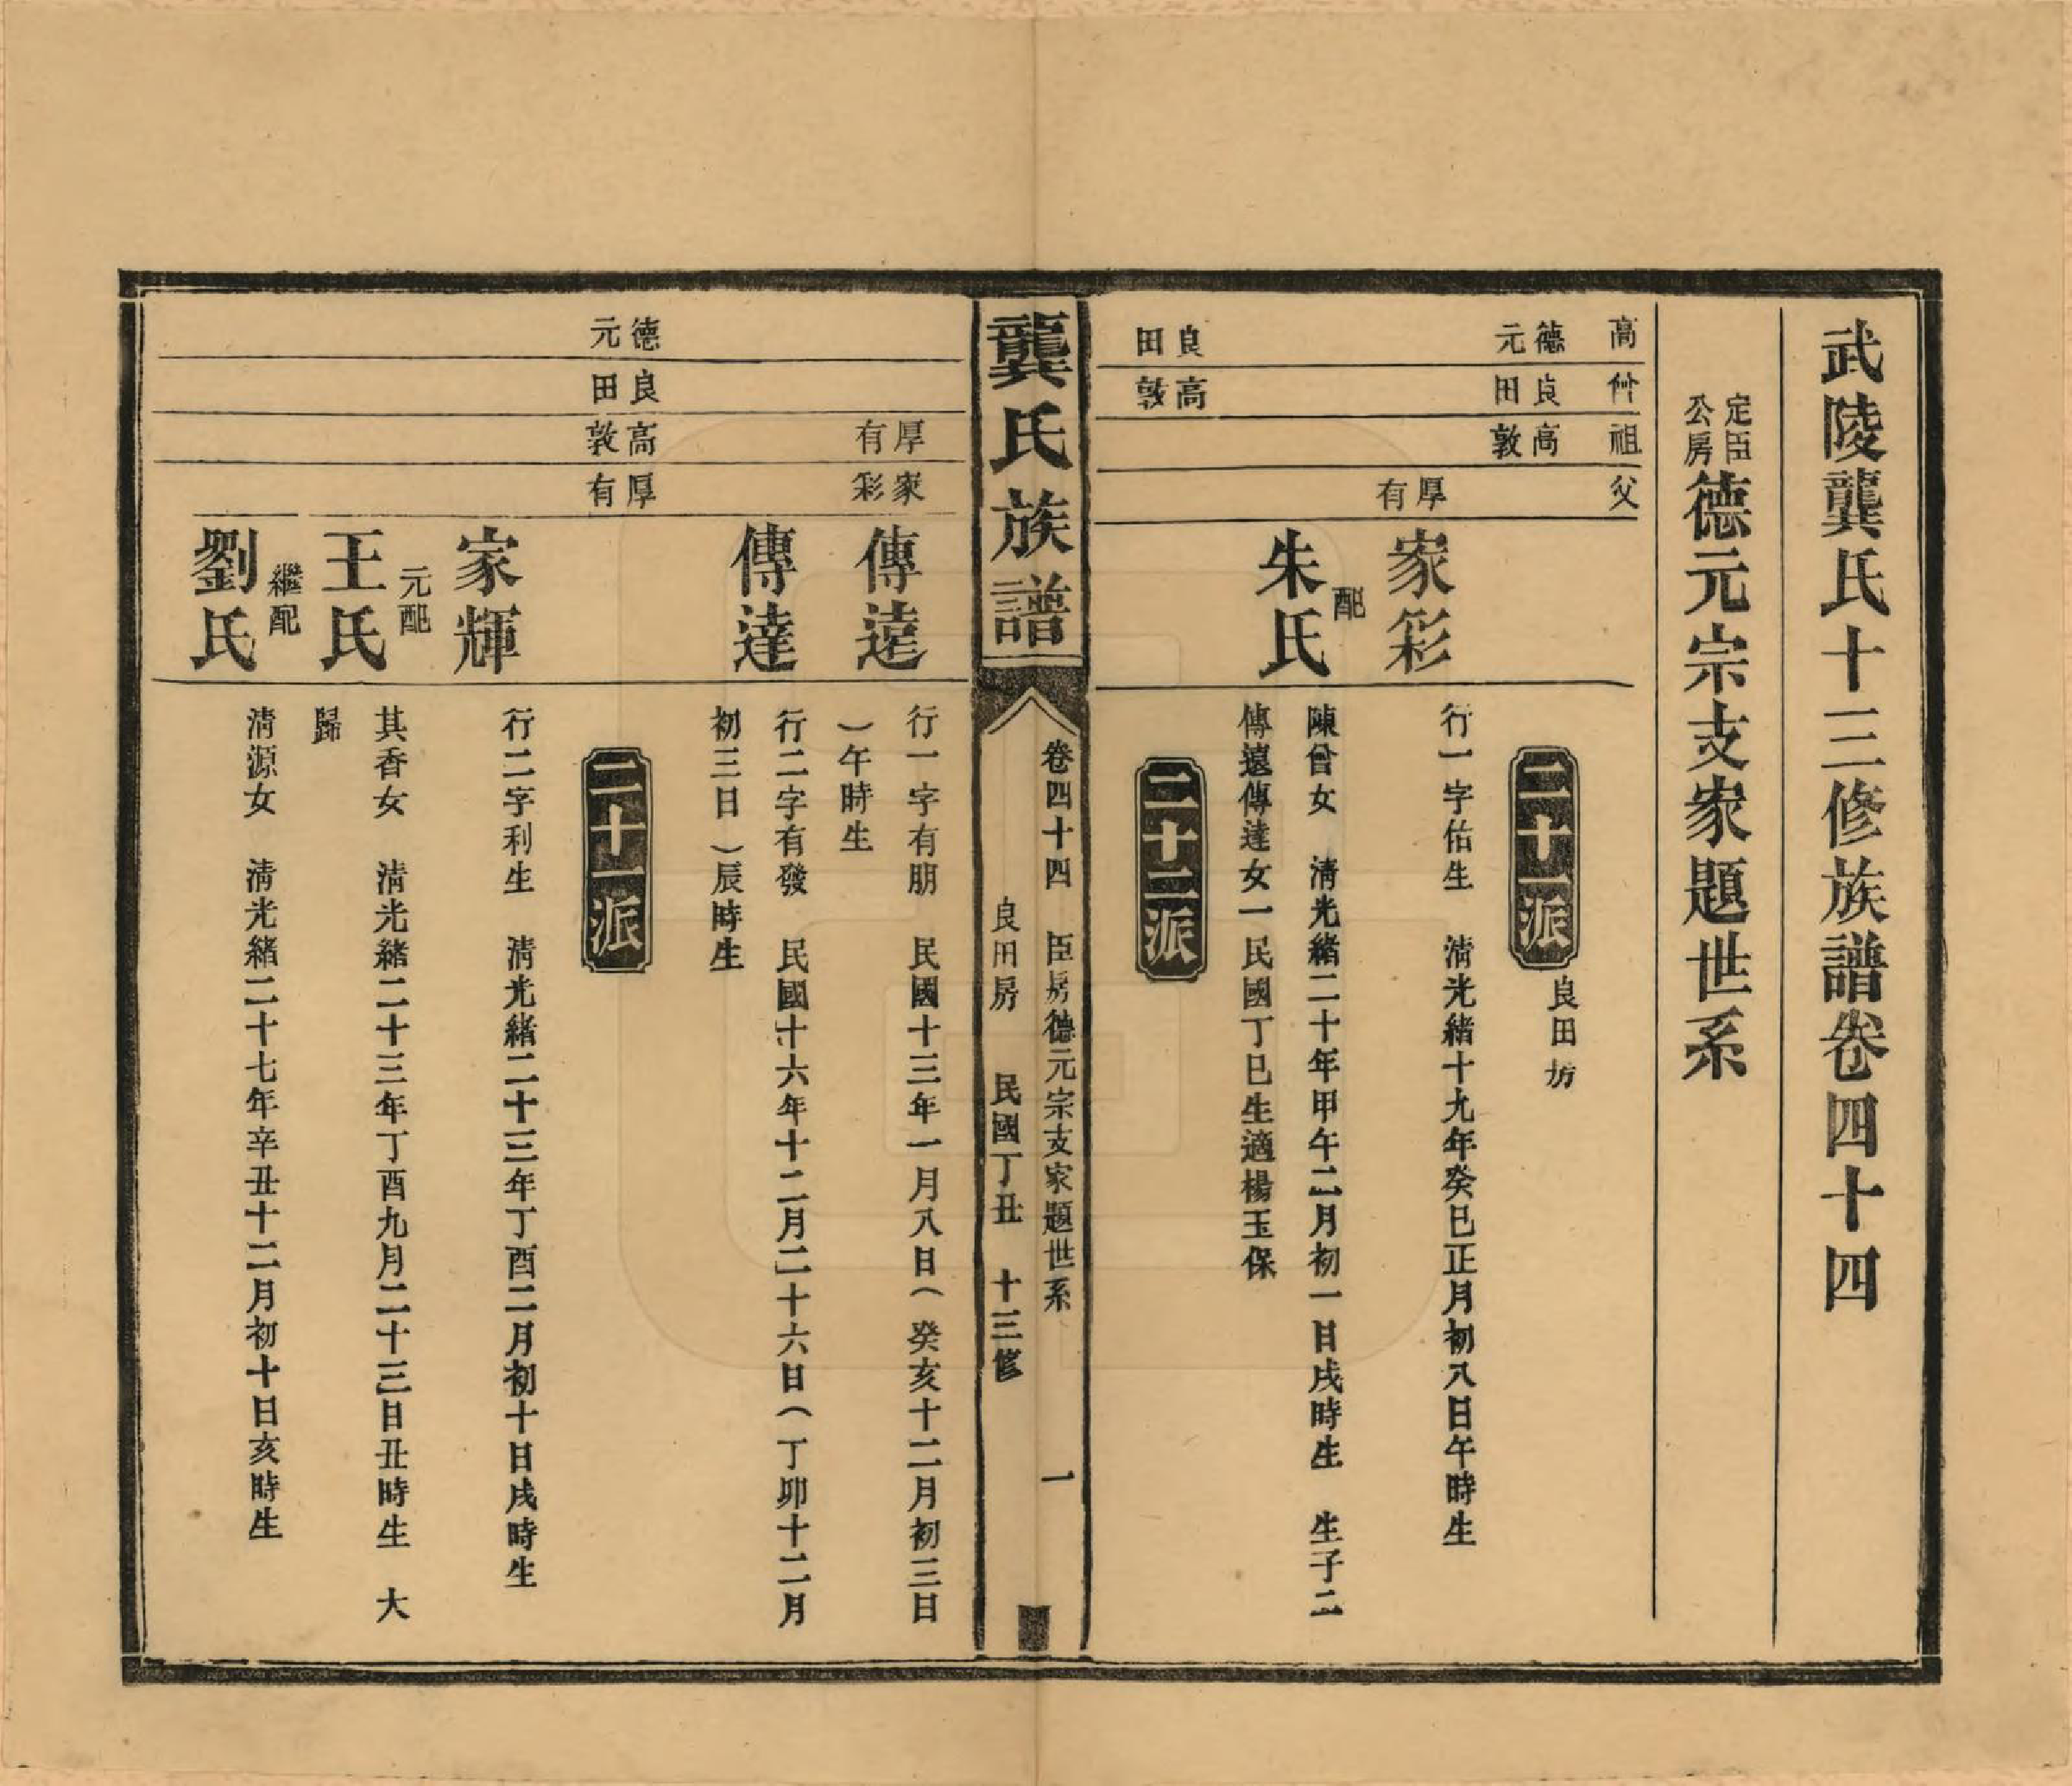 武陵龔氏十三修族譜卷四十四
定臣
公房
德元宗支家題世系
高
曾
祖
父
德元
良田
高敦
二十一派
良田房
厚有
家彩
行一字佑生　淸光緒十九年癸巳正月初八日午時生
配
朱氏
陳曾女　淸光緒二十年甲午二月初一日戌時生　生子二
傳遠傳達女一民國丁巳生適楊玉保
良田
高敦
二十二派
龔氏族譜
卷四十四　臣房德元宗支家題世系　一
良田房　民國丁丑　十三修
厚有
家彩
傳遠
行一字有朋　民國十三年一月八日（癸亥十二月初三日
）午時生
傳達
行二字有發　民國十六年十二月二十六日（丁卯十二月
初三日）辰時生
德元
良田
高敦
厚有
二十一派
家輝
行二字利生　淸光緒二十三年丁酉二月初十日戌時生
元配
王氏
其香女　淸光緒二十三年丁酉九月二十三日丑時生　大
歸
繼配
劉氏
淸源女　淸光緒二十七年辛丑十二月初十日亥時生